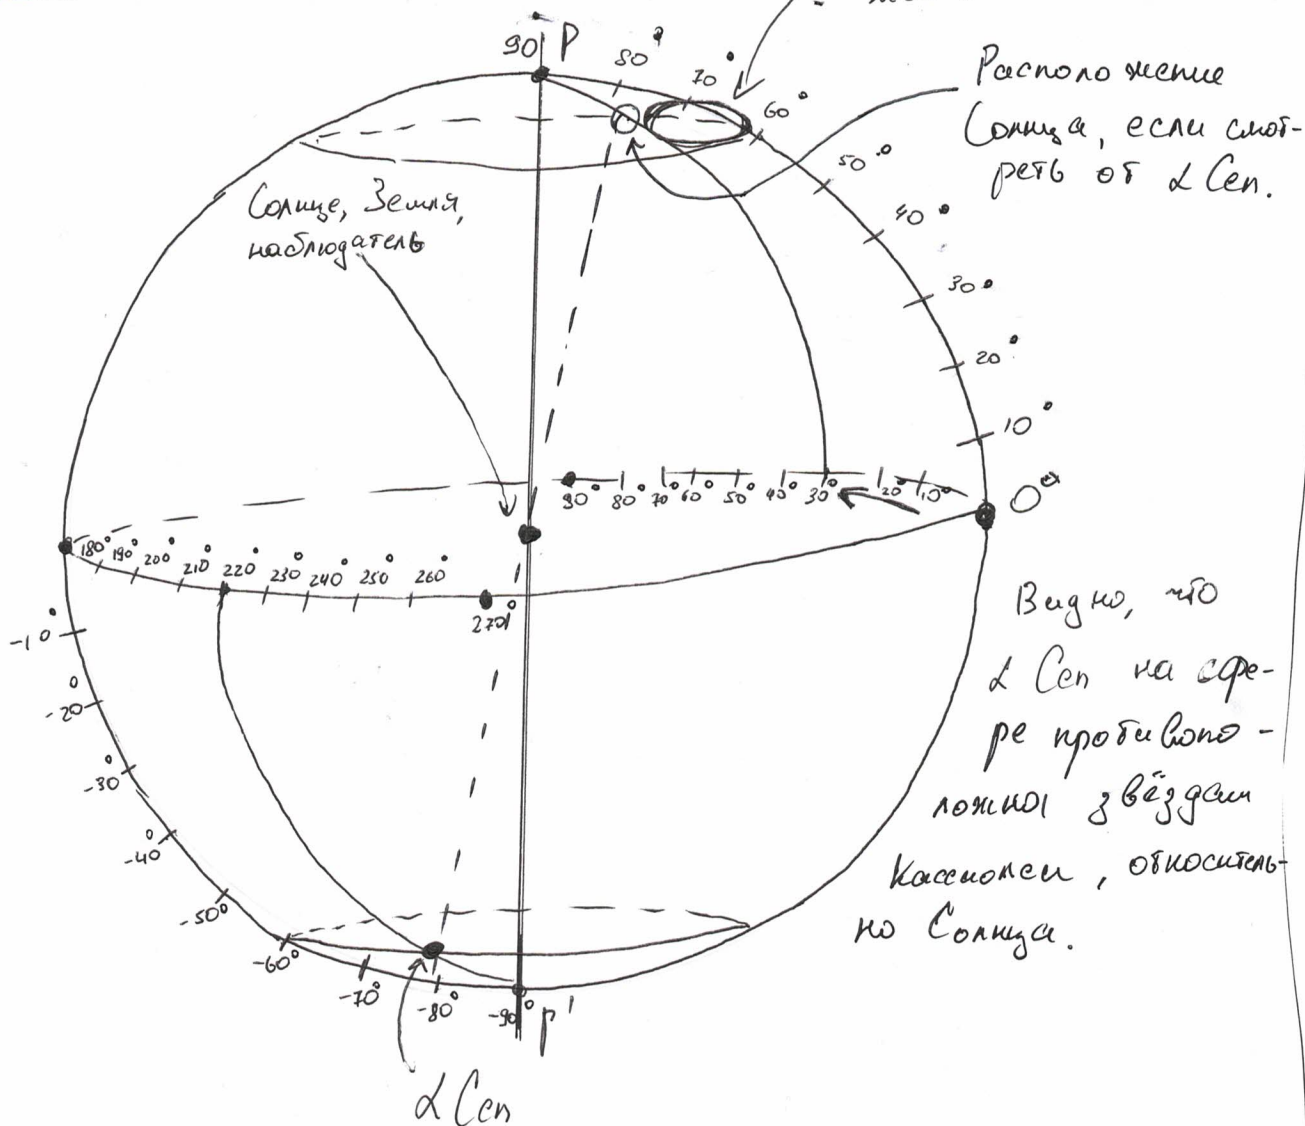 90° P
80°
70°
60°
50°
40°
30°
20°
10°
0°
Расположение
Солнца, если смот-
реть от α Cen.
Солнце, Земля,
наблюдатель
90° 80° 70° 60° 50° 40° 30° 20° 10°
180° 190° 200° 210° 220° 230° 240° 250° 260°
270°
-10°
-20°
-30°
-40°
-50°
-60°
-70°
-80°
-90° P'
α Cen
Видно, что
α Cen на сфе-
ре противопо-
ложна звёздам
Кассиопеи, относитель-
но Солнца.